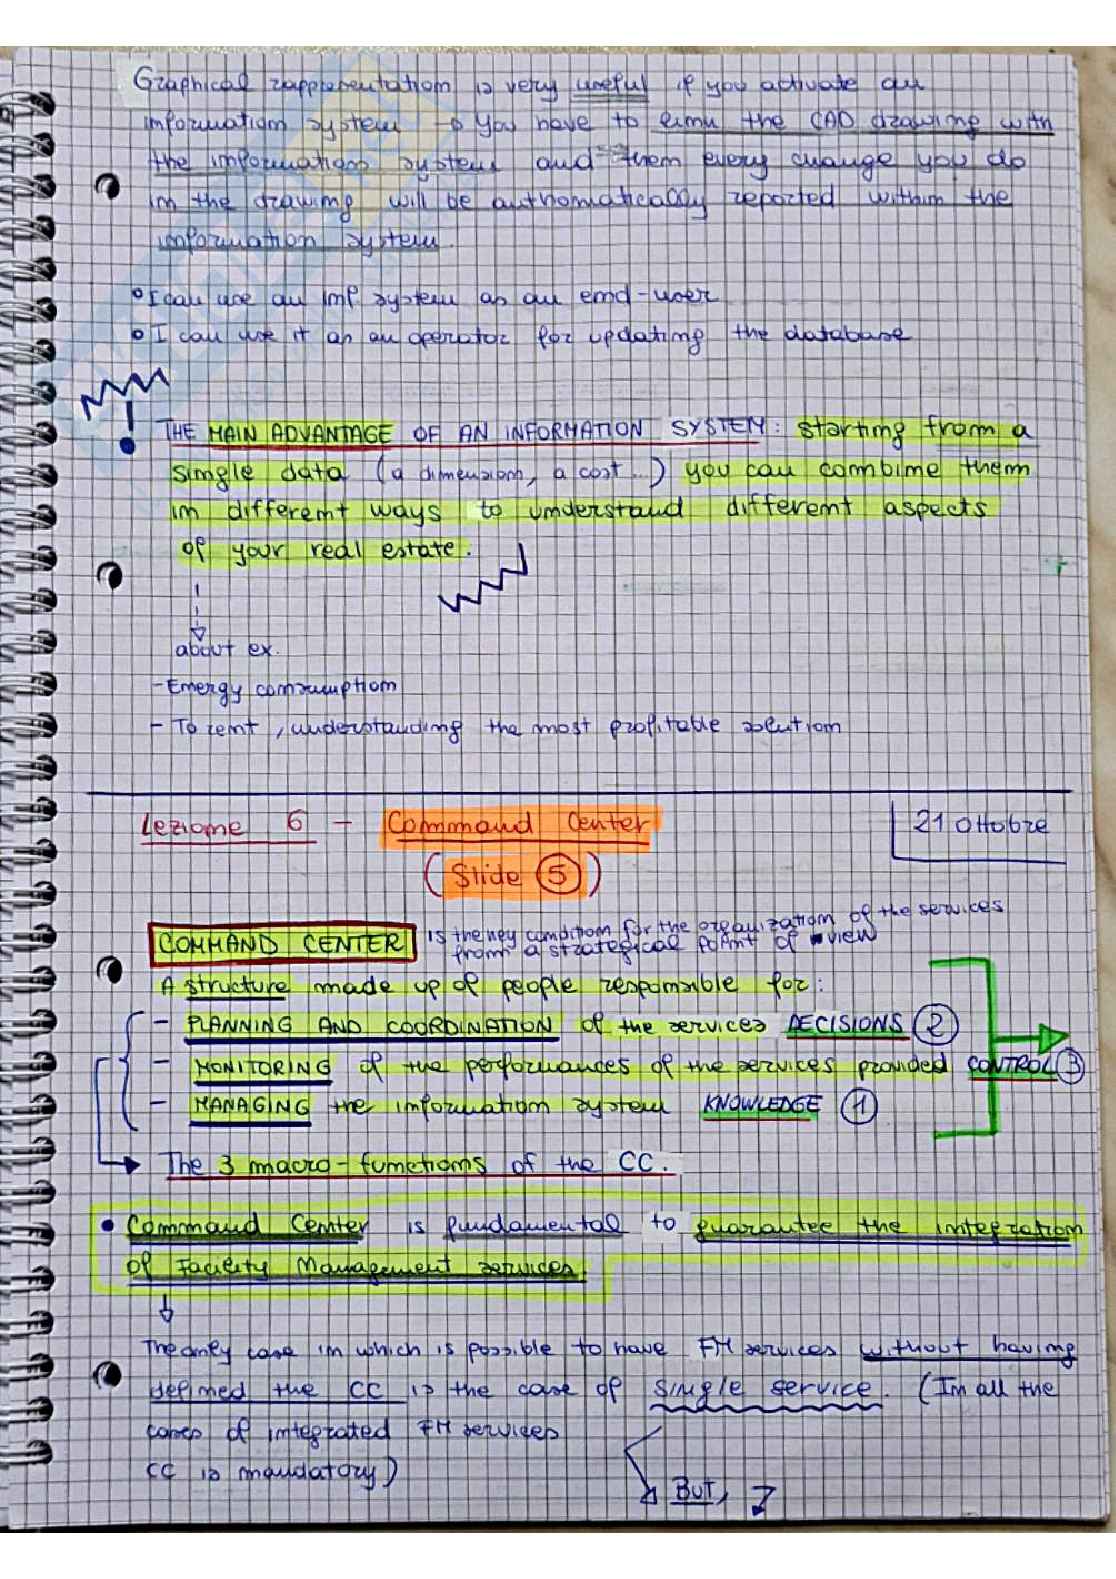 Graphical rappresentation is very useful if you activate an
information system → you have to link the CAD drawing with
the information system and then every change you do
in the drawing will be authomatically reported within the
information system.
• I can use an inf system as an end-user
• I can use it as an operator for updating the database
!
THE MAIN ADVANTAGE OF AN INFORMATION SYSTEM: starting from a
single data (a dimension, a cost...) you can combine them
in different ways to understand different aspects
of your real estate.
about ex.
- Energy consumption
- To rent, understanding the most profitable solution
Lezione 6 - Command Center
21 Ottobre
(Slide 5)
COMMAND CENTER is the key condition for the organization of the services
from a strategical point of view
A structure made up of people responsible for:
- PLANNING AND COORDINATION of the services DECISIONS 2
- MONITORING of the performances of the services provided CONTROL 3
- MANAGING the information system KNOWLEDGE 1
→ The 3 macro-functions of the CC.
• Command Center is fundamental to guarantee the integration
of Facility Management services.
The only case in which is possible to have FM services without having
defined the CC is the case of single service. (In all the
cases of integrated FM services
CC is mandatory)
BUT,